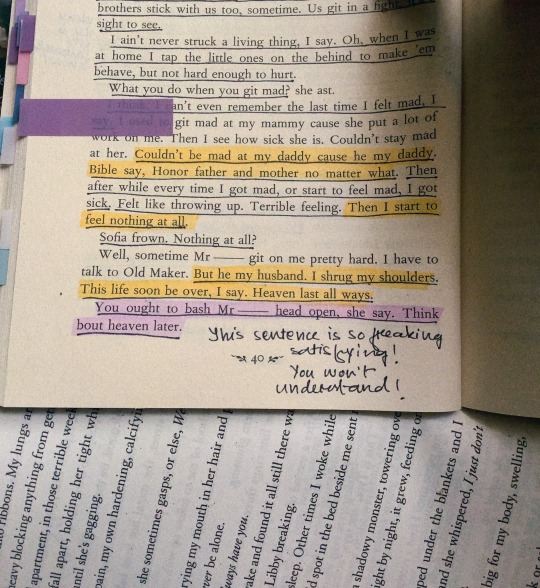 brothers stick with us too, sometime. Us git in a fight, it's a
sight to see.
I ain't never struck a living thing, I say. Oh, when I was
at home I tap the little ones on the behind to make 'em
behave, but not hard enough to hurt.
What you do when you git mad? she ast.
I think. I can't even remember the last time I felt mad, I
say. I used to git mad at my mammy cause she put a lot of
work on me. Then I see how sick she is. Couldn't stay mad
at her. Couldn't be mad at my daddy cause he my daddy.
Bible say, Honor father and mother no matter what. Then
after while every time I got mad, or start to feel mad, I got
sick. Felt like throwing up. Terrible feeling. Then I start to
feel nothing at all.
Sofia frown. Nothing at all?
Well, sometime Mr —— git on me pretty hard. I have to
talk to Old Maker. But he my husband. I shrug my shoulders.
This life soon be over, I say. Heaven last all ways.
You ought to bash Mr —— head open, she say. Think
bout heaven later.
This sentence is so freaking
satisfying!
40
You won't
understand!
ribbons. My lungs
heavy blocking anything from
apartment, in those terrible
fall apart, holding her tight
until she's gagging.
pain, my own hardening, calcifyin
she sometimes gasps, or else,
rying my mouth in her hair and
ver be alone.
always have you.
ake and found it all still there
Libby breaking.
sleep. Other times I woke while
d spot in the bed beside me sent
shadowy mouster, towering
ght by night, it grew, feeding
ped under the blankets and I
nd she whispered, I just don't
ng for my body, swelling,